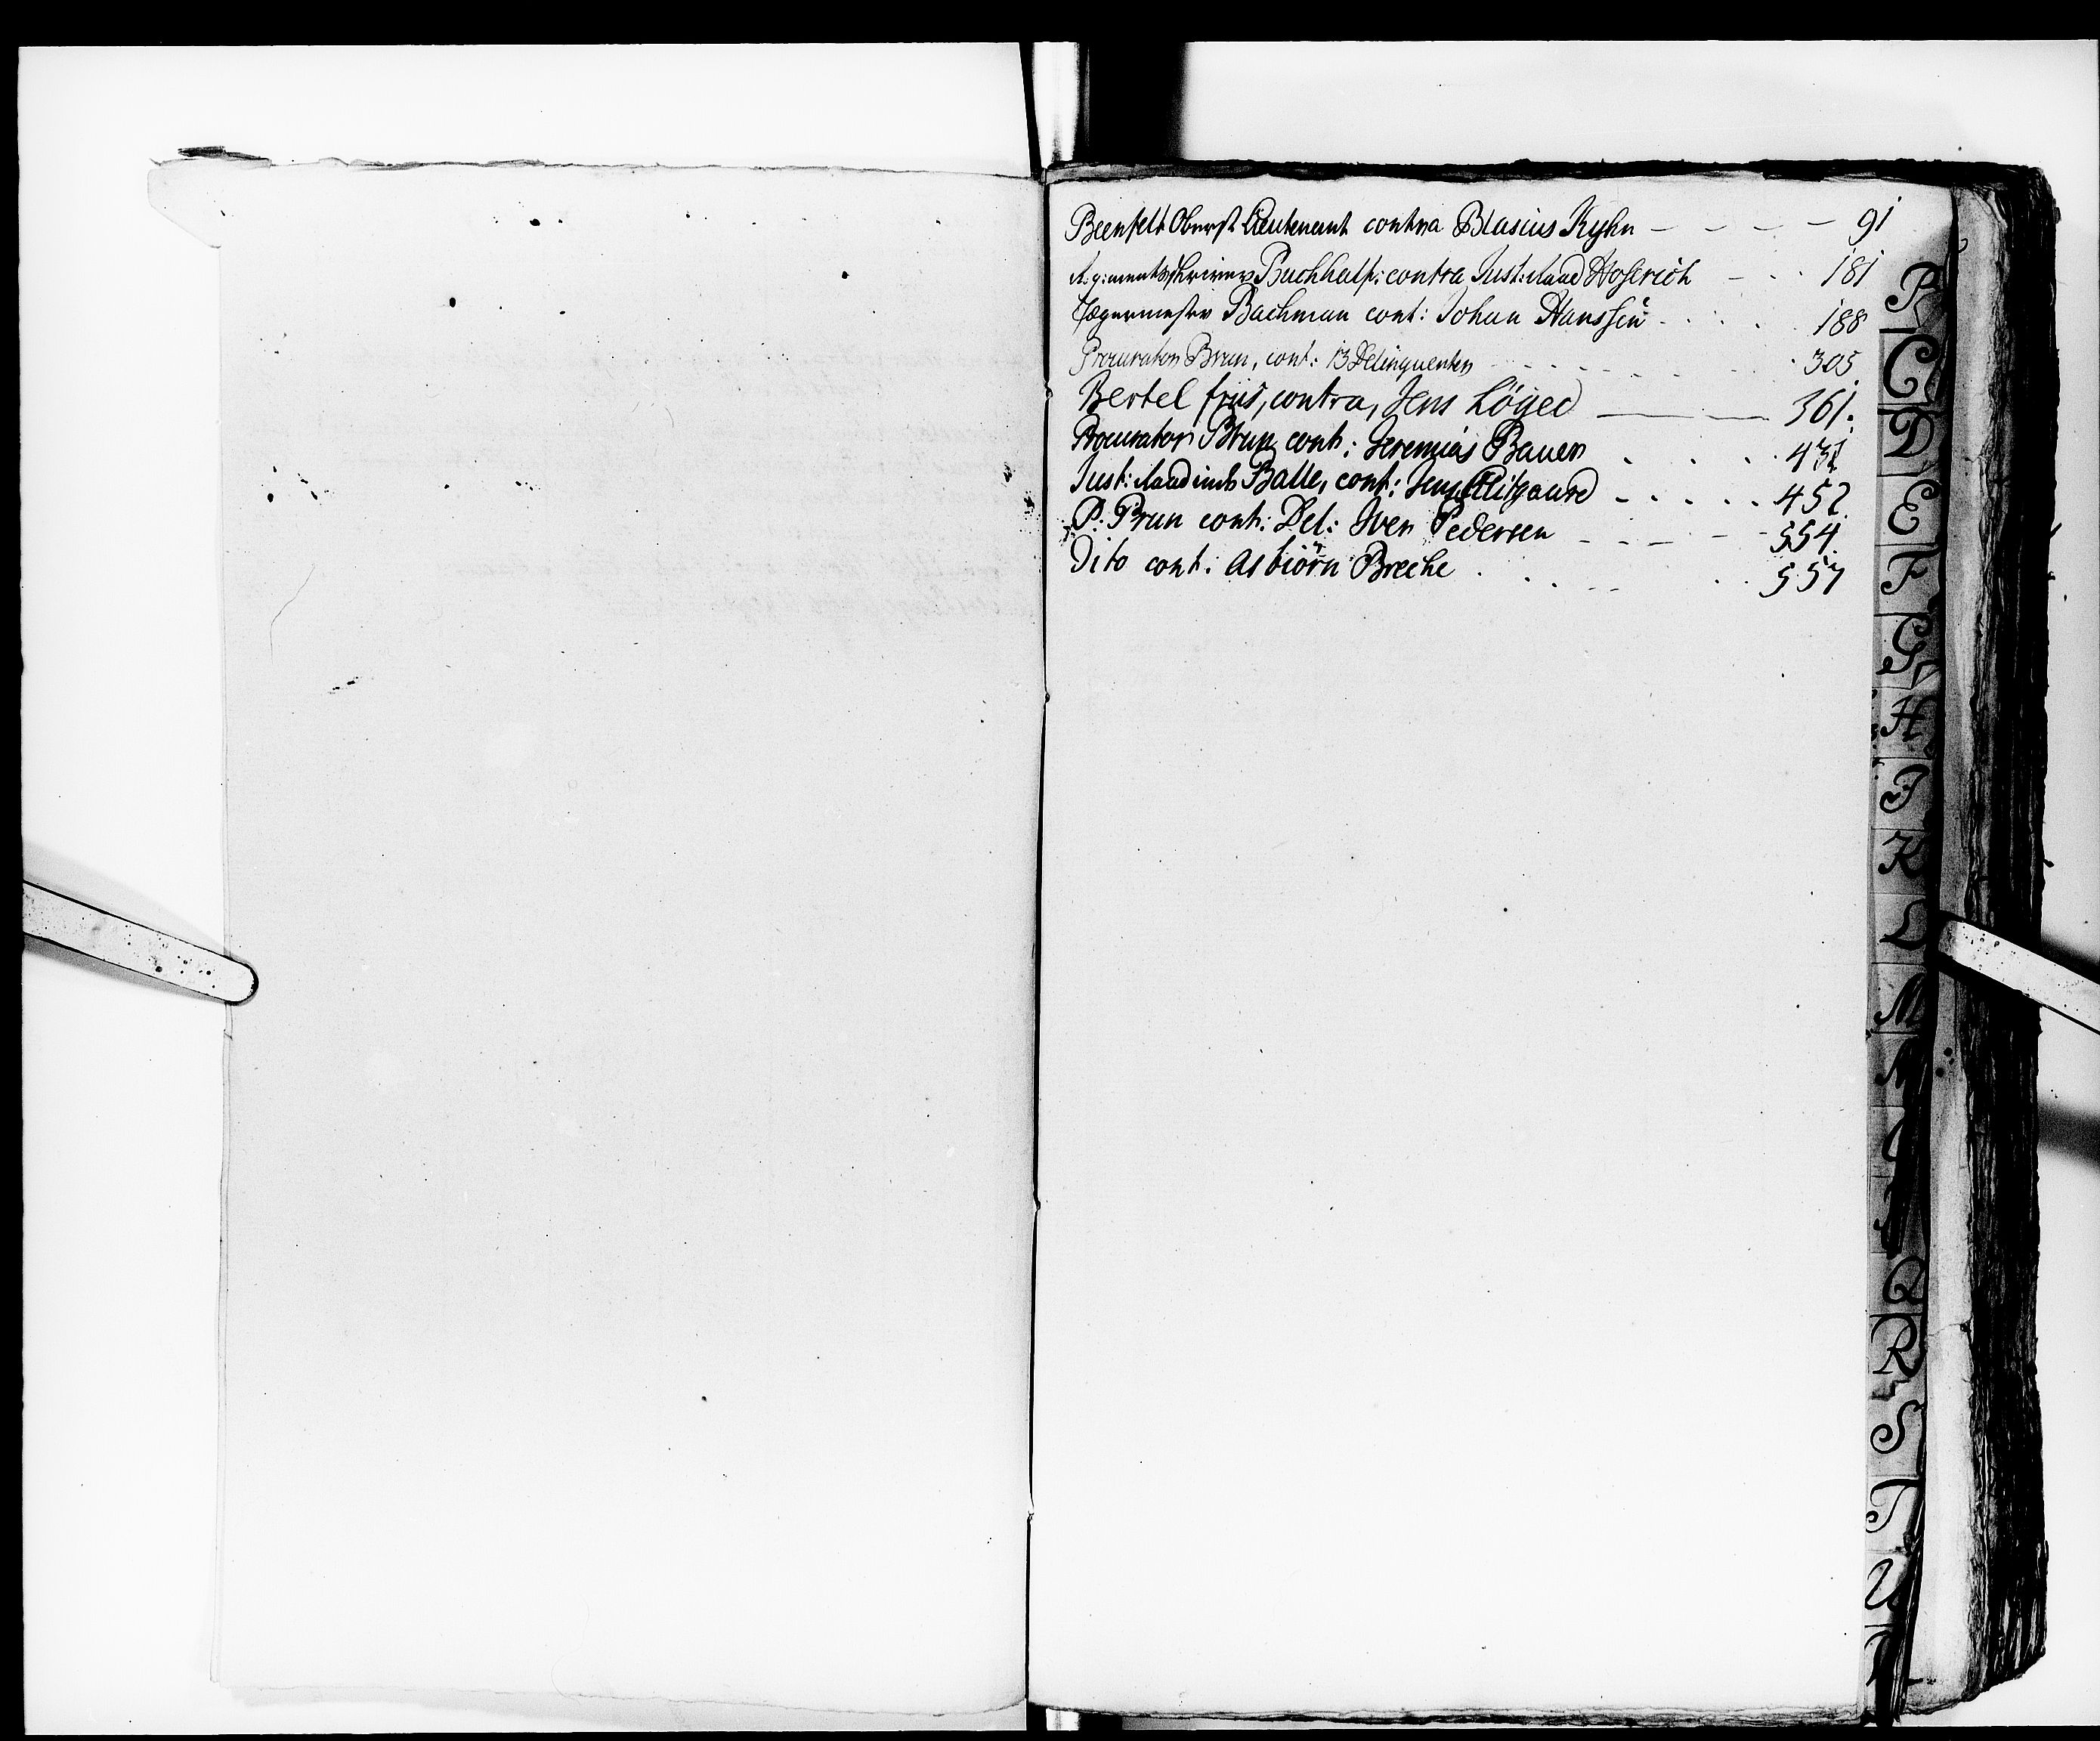 Beenfelt Oberst Lieutenant contra Blasius Kyhn – – – – – 91
Regimentsskriver Buchhalf: contra Just: Raad Hoserich – . . 181
Jægermester Bachman cont: Johan Hanssen . . . . 188
Procurator Brun, cont: 13 Delinquenter . . . . . . 305
Bertel friis, contra, Jens Löyed ——— 361.
Procurator Brun cont: Jeremias Bauer . . . . 431
Just: Raadinde Balle, cont: Jens Clitgaard – . . . . 452.
P: Brun cont: Del: Iver Pedersen – – – – – 554.
Dito cont: Asbiörn Breche . . . – – . . 557
B
C
D
E
F
G
H
I
K
L
M
N
O
P
Q
R
S
T
U